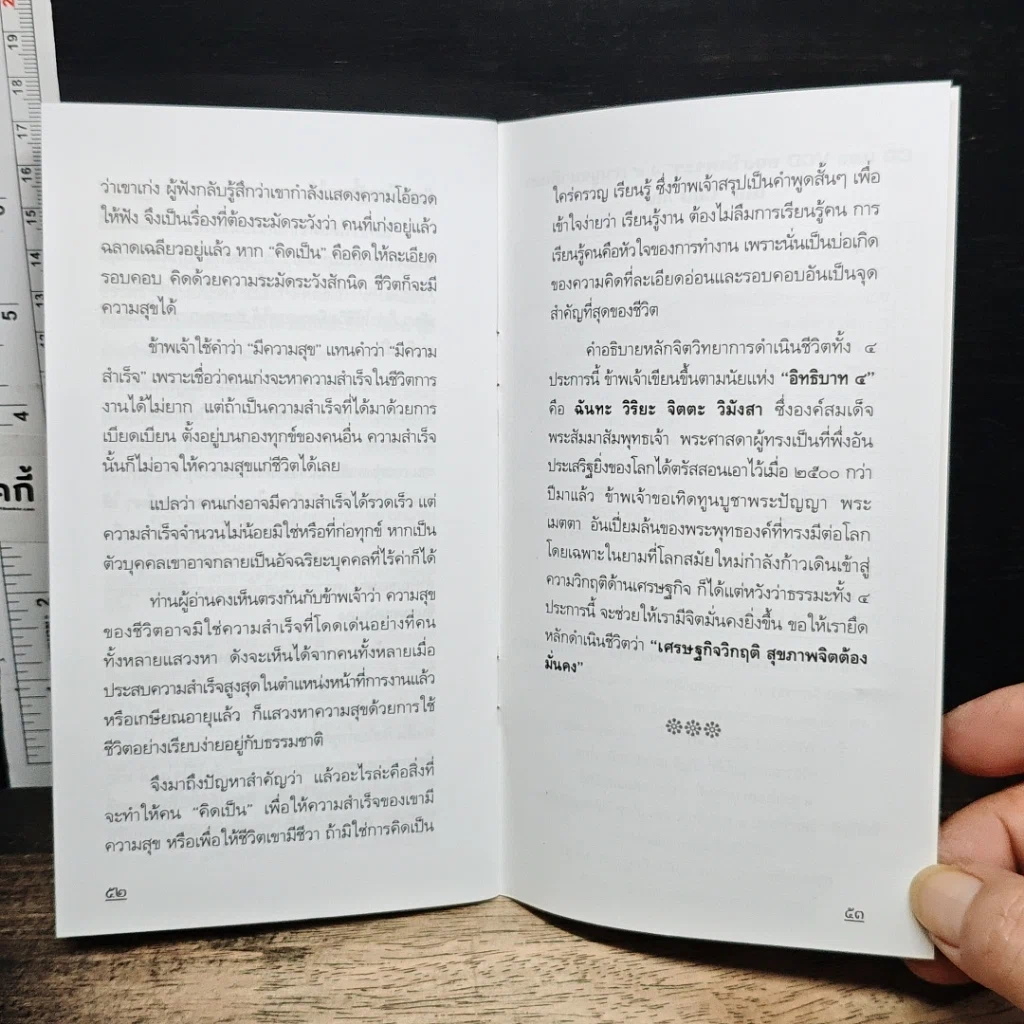 ว่าเขาเก่ง ผู้ฟังกลับรู้สึกว่าเขากำลังแสดงความโอ้อวด
ให้ฟัง จึงเป็นเรื่องที่ต้องระมัดระวังว่า คนที่เก่งอยู่แล้ว
ฉลาดเฉลียวอยู่แล้ว หาก “คิดเป็น” คือคิดให้ละเอียด
รอบคอบ คิดด้วยความระมัดระวังสักนิด ชีวิตก็จะมี
ความสุขได้
ข้าพเจ้าใช้คำว่า “มีความสุข” แทนคำว่า “มีความ
สำเร็จ” เพราะเชื่อว่าคนเก่งจะหาความสำเร็จในชีวิตการ
งานได้ไม่ยาก แต่ถ้าเป็นความสำเร็จที่ได้มาด้วยการ
เบียดเบียน ตั้งอยู่บนกองทุกข์ของคนอื่น ความสำเร็จ
นั้นก็ไม่อาจให้ความสุขแก่ชีวิตได้เลย
แปลว่า คนเก่งอาจมีความสำเร็จได้รวดเร็ว แต่
ความสำเร็จจำนวนไม่น้อยมิใช่หรือที่ก่อทุกข์ หากเป็น
ตัวบุคคลเขาอาจกลายเป็นอัจฉริยะบุคคลที่ไร้ค่าก็ได้
ท่านผู้อ่านคงเห็นตรงกันกับข้าพเจ้าว่า ความสุข
ของชีวิตอาจมิใช่ความสำเร็จที่โดดเด่นอย่างที่คน
ทั้งหลายแสวงหา ดังจะเห็นได้จากคนทั้งหลายเมื่อ
ประสบความสำเร็จสูงสุดในตำแหน่งหน้าที่การงานแล้ว
หรือเกษียณอายุแล้ว ก็แสวงหาความสุขด้วยการใช้
ชีวิตอย่างเรียบง่ายอยู่กับธรรมชาติ
จึงมาถึงปัญหาสำคัญว่า แล้วอะไรล่ะคือสิ่งที่
จะทำให้คน “คิดเป็น” เพื่อให้ความสำเร็จของเขามี
ความสุข หรือเพื่อให้ชีวิตเขามีชีวา ถ้ามิใช่การคิดเป็น
๕๒
ใคร่ครวญ เรียนรู้ ซึ่งข้าพเจ้าสรุปเป็นคำพูดสั้นๆ เพื่อ
เข้าใจง่ายว่า เรียนรู้งาน ต้องไม่ลืมการเรียนรู้คน การ
เรียนรู้คนคือหัวใจของการทำงาน เพราะนั่นเป็นบ่อเกิด
ของความคิดที่ละเอียดอ่อนและรอบคอบอันเป็นจุด
สำคัญที่สุดของชีวิต
คำอธิบายหลักจิตวิทยาการดำเนินชีวิตทั้ง ๔
ประการนี้ ข้าพเจ้าเขียนขึ้นตามนัยแห่ง “อิทธิบาท ๔”
คือ ฉันทะ วิริยะ จิตตะ วิมังสา ซึ่งองค์สมเด็จ
พระสัมมาสัมพุทธเจ้า พระศาสดาผู้ทรงเป็นที่พึ่งอัน
ประเสริฐยิ่งของโลกได้ตรัสสอนเอาไว้เมื่อ ๒๕๐๐ กว่า
ปีมาแล้ว ข้าพเจ้าขอเทิดทูนบูชาพระปัญญา พระ
เมตตา อันเปี่ยมล้นของพระพุทธองค์ที่ทรงมีต่อโลก
โดยเฉพาะในยามที่โลกสมัยใหม่กำลังก้าวเดินเข้าสู่
ความวิกฤติด้านเศรษฐกิจ ก็ได้แต่หวังว่าธรรมะทั้ง ๔
ประการนี้ จะช่วยให้เรามีจิตมั่นคงยิ่งขึ้น ขอให้เรายึด
หลักดำเนินชีวิตว่า “เศรษฐกิจวิกฤติ สุขภาพจิตต้อง
มั่นคง”
๕๓
19
18
17
16
15
14
13
5
4
2